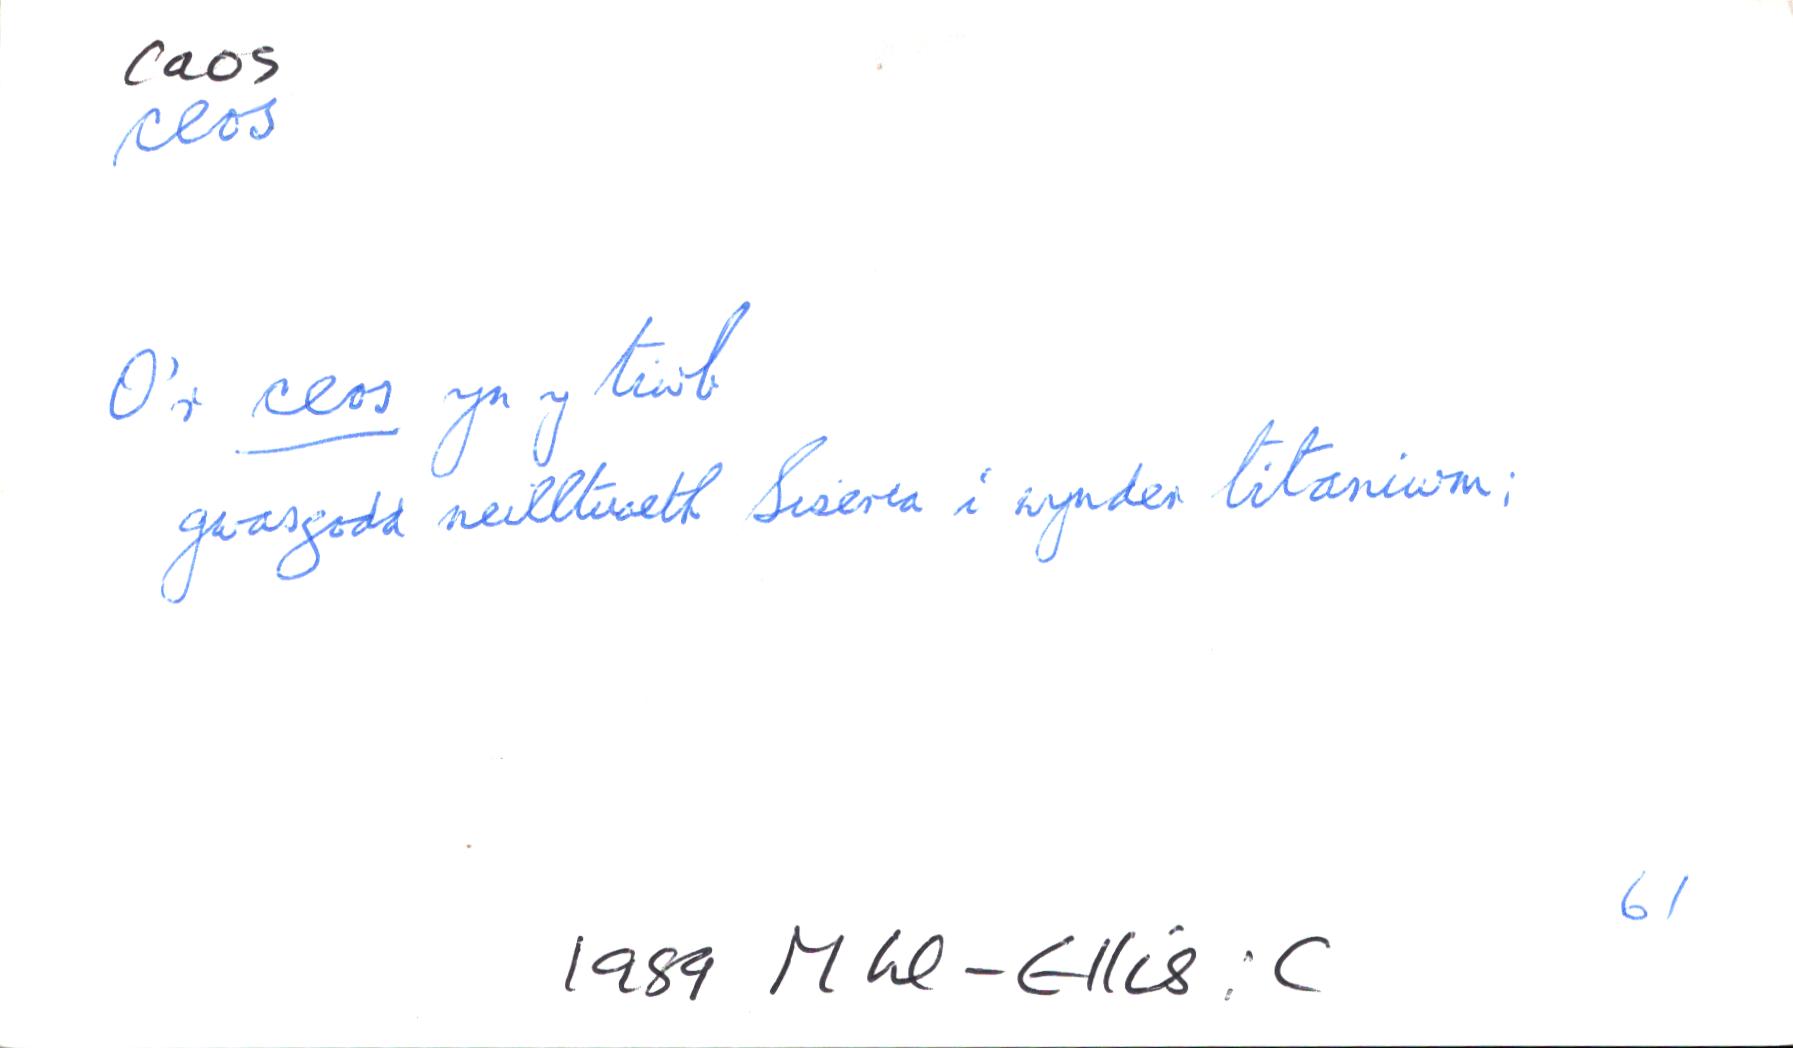 caos
ceos
O'r ceos yn y tiwb
gwasgodd neilltuaeth Sisera i wynder titaniwm;
61
1989 M Ll-Ellis : C